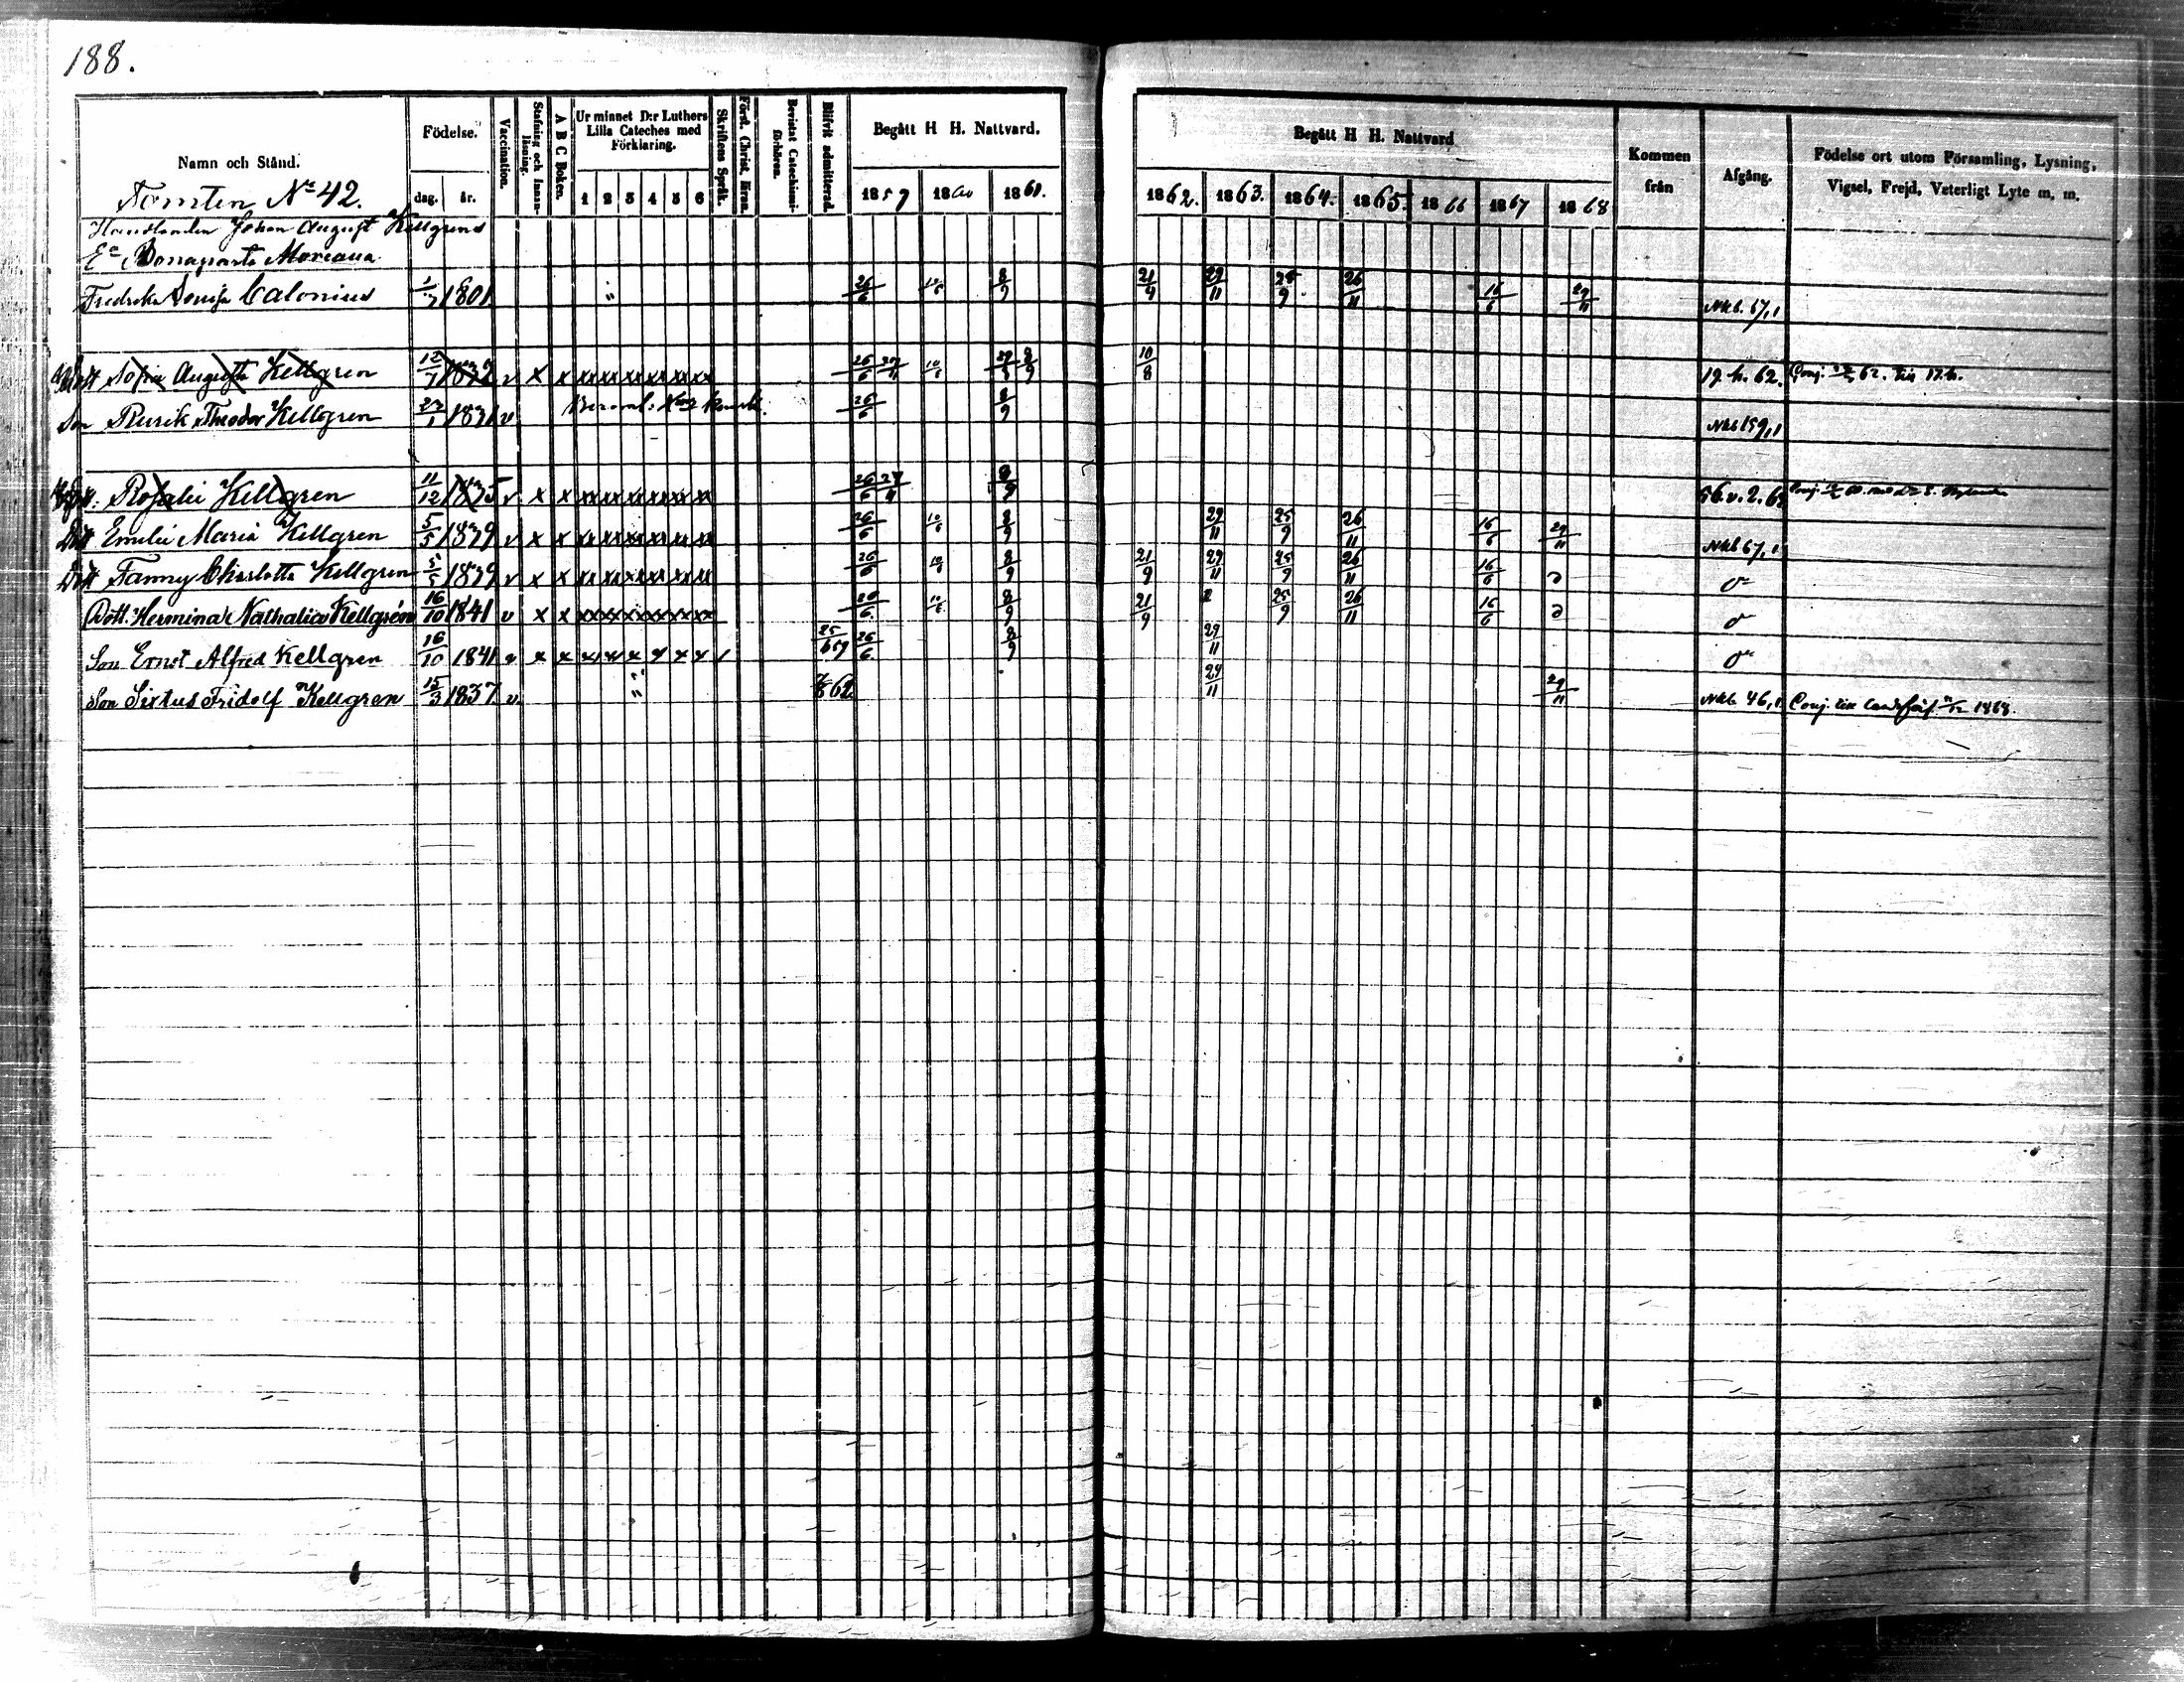 188.
Namn och Stånd.
Födelse.
dag. år.
Vaccination.
Stafning och Innanläsning.
A B C Boken.
Ur minnet D:r Luthers Lilla Cateches med Förklaring.
1 2 3 4 5 6
Skriftens Språk.
Bevistat Catechismiförhören.
Blifvit admitterad.
Begått H H. Nattvard.
1859 1860 1861.
Begått H H. Nattvard
1862. 1863. 1864. 1865. 1866 1867 1868
Kommen från
Afgång.
Födelse ort utom Församling, Lysning, Vigsel, Frejd, Veterligt Lyte m, m.
Tomten No 42.
Handlanden Johan August Kellgrens
Ea Bonaparte Moreaus
Fredrika Lovisa Calonius 1/7 1801 " 26/6 10/6 8/9 21/9 29/11 25/9 26/11 16/6 29/11 Nkb. 67,1
Dott Sofia Augusta Kellgren 12/7 1832 v x x 26/6 27/11 10/6 8/9 10/8 19. h. 62.
Son Rurik Theodor Kellgren 23/1 v 26/6 8/9 Nkb 159,1
Rosalie Kellgren 11/12 1835 v x x 26/6 27/11 8/9 56. v. 2. 6
Dott Emilie Maria Kellgren 5/5 1839 v x x 26/6 10/6 8/9 29/11 25/9 26/11 16/6 29/11 Nkb 67,1
Dott Fanny Charlotta Kellgren 5/5 1839 v x x 26/6 10/6 8/9 21/9 29/11 25/9 26/11 16/6
Dott. Hermina Nathalia Kellgrén 16/10 1841 v x x 26/6 10/6 8/9 21/9 25/9 26/11 16/6
Son Ernst Alfred Kellgren 16/10 1841 v x x x x x x x x 25/6 59 26/6 8/9 29/11
Son Sixtus Fridolf Kellgren 15/3 1837. v. " 62 29/11 29/11 Nkb 46,1 Conj. till 1868.